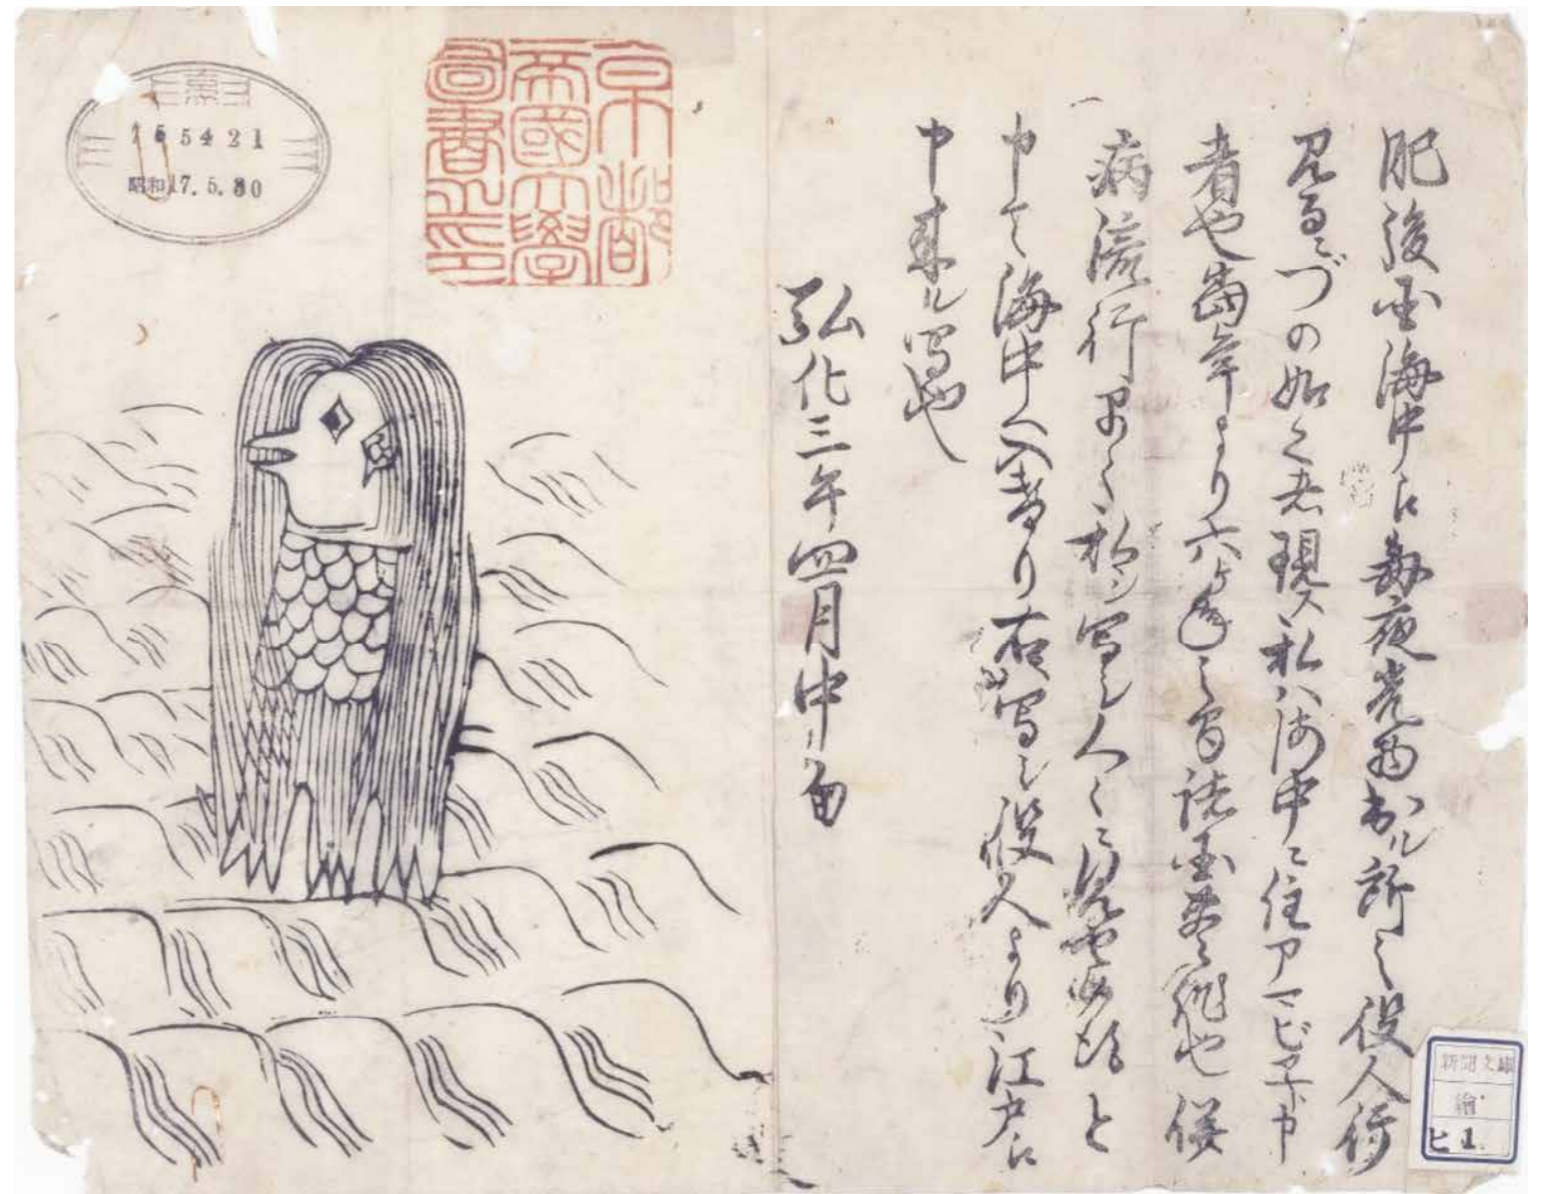 肥後国海中江毎夜光物出ル所之役人行
見るニづの如く者現ス私ハ海中ニ住アマビヱト申
者也當年より六ヶ年之間諸国豊作也併
病流行早々私ヲ写シ人々ニ見セ候得と
申て海中へ入けり右ハ写シ役人より江戸江
申来ル写也
弘化三年四月中旬
京都
帝國大學
圖書之印
155421
昭和17.5.30
新聞文庫
繪
ヒ 1